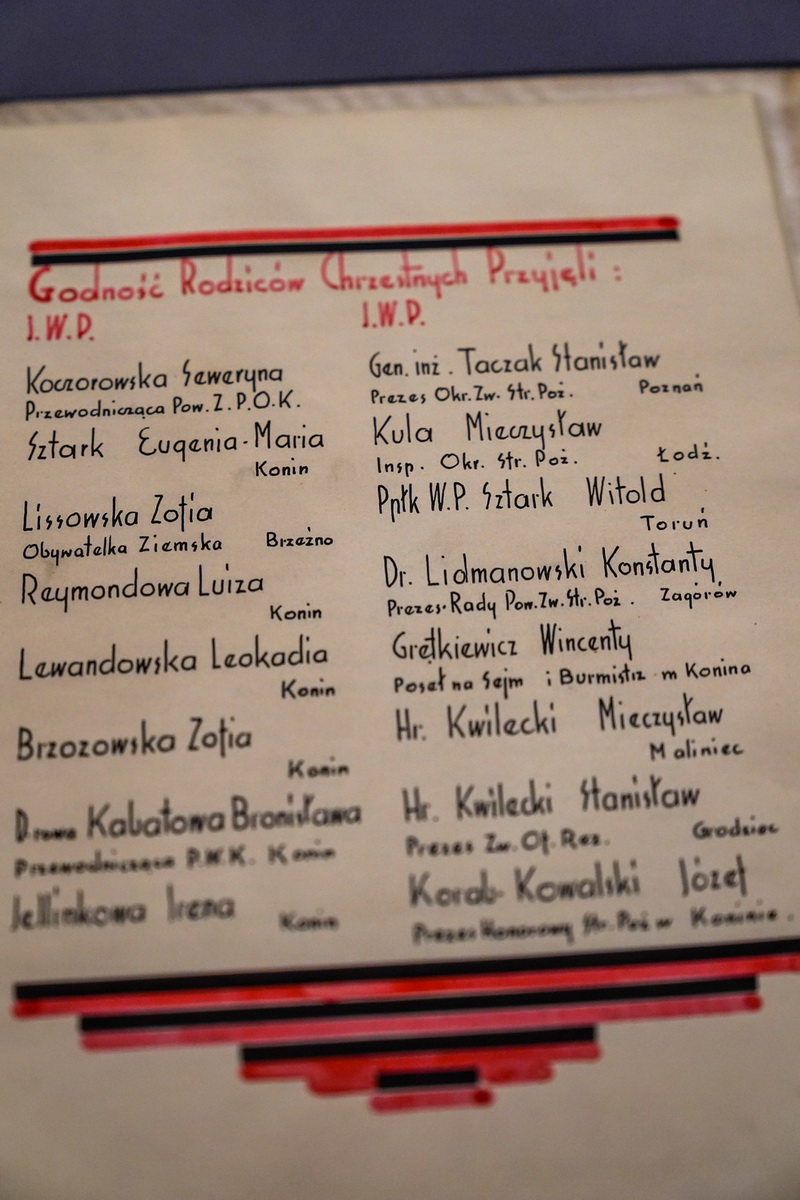 Godność Rodziców Chrzestnych Przyjęli :
J.W.P.
Koczorowska Seweryna
Przewodnicząca Pow. Z.P.O.K.
Sztark Eugenia-Maria
Konin
Lissowska Zofia
Obywatelka Ziemska Brzeźno
Reymondowa Luiza
Konin
Lewandowska Leokadia
Konin
Brzozowska Zofia
Konin
Kabatowa Bronisława
Przewodnicząca P.W.K. Konin
Jellinkowa Irena
Konin
J.W.P.
Gen. inż. Taczak Stanisław
Prezes Okr. Zw. Str. Poż. Poznań
Kula Mieczysław
Insp. Okr. Str. Poż. Łodź.
Ppłk W.P. Sztark Witold
Toruń
Dr. Lidmanowski Konstanty
Prezes-Rady Pow. Zw. Str. Poż. Zagórów
Grętkiewicz Wincenty
Poseł na Sejm i Burmistrz m Konina
Hr. Kwilecki Mieczysław
Maliniec
Hr. Kwilecki Stanisław
Prezes Zw. Of. Rez. Grodziec
Korab-Kowalski Józef
Prezes Honorowy Str. Poż w Koninie.